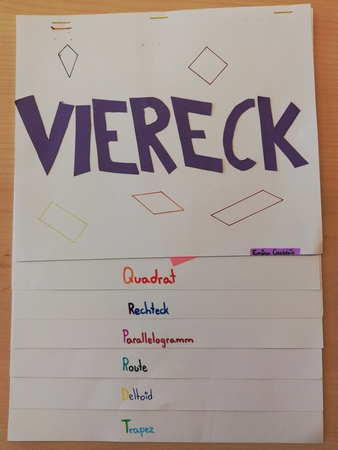 VIERECK
Quadrat
Rechteck
Parallelogramm
Route
Deltoid
Trapez